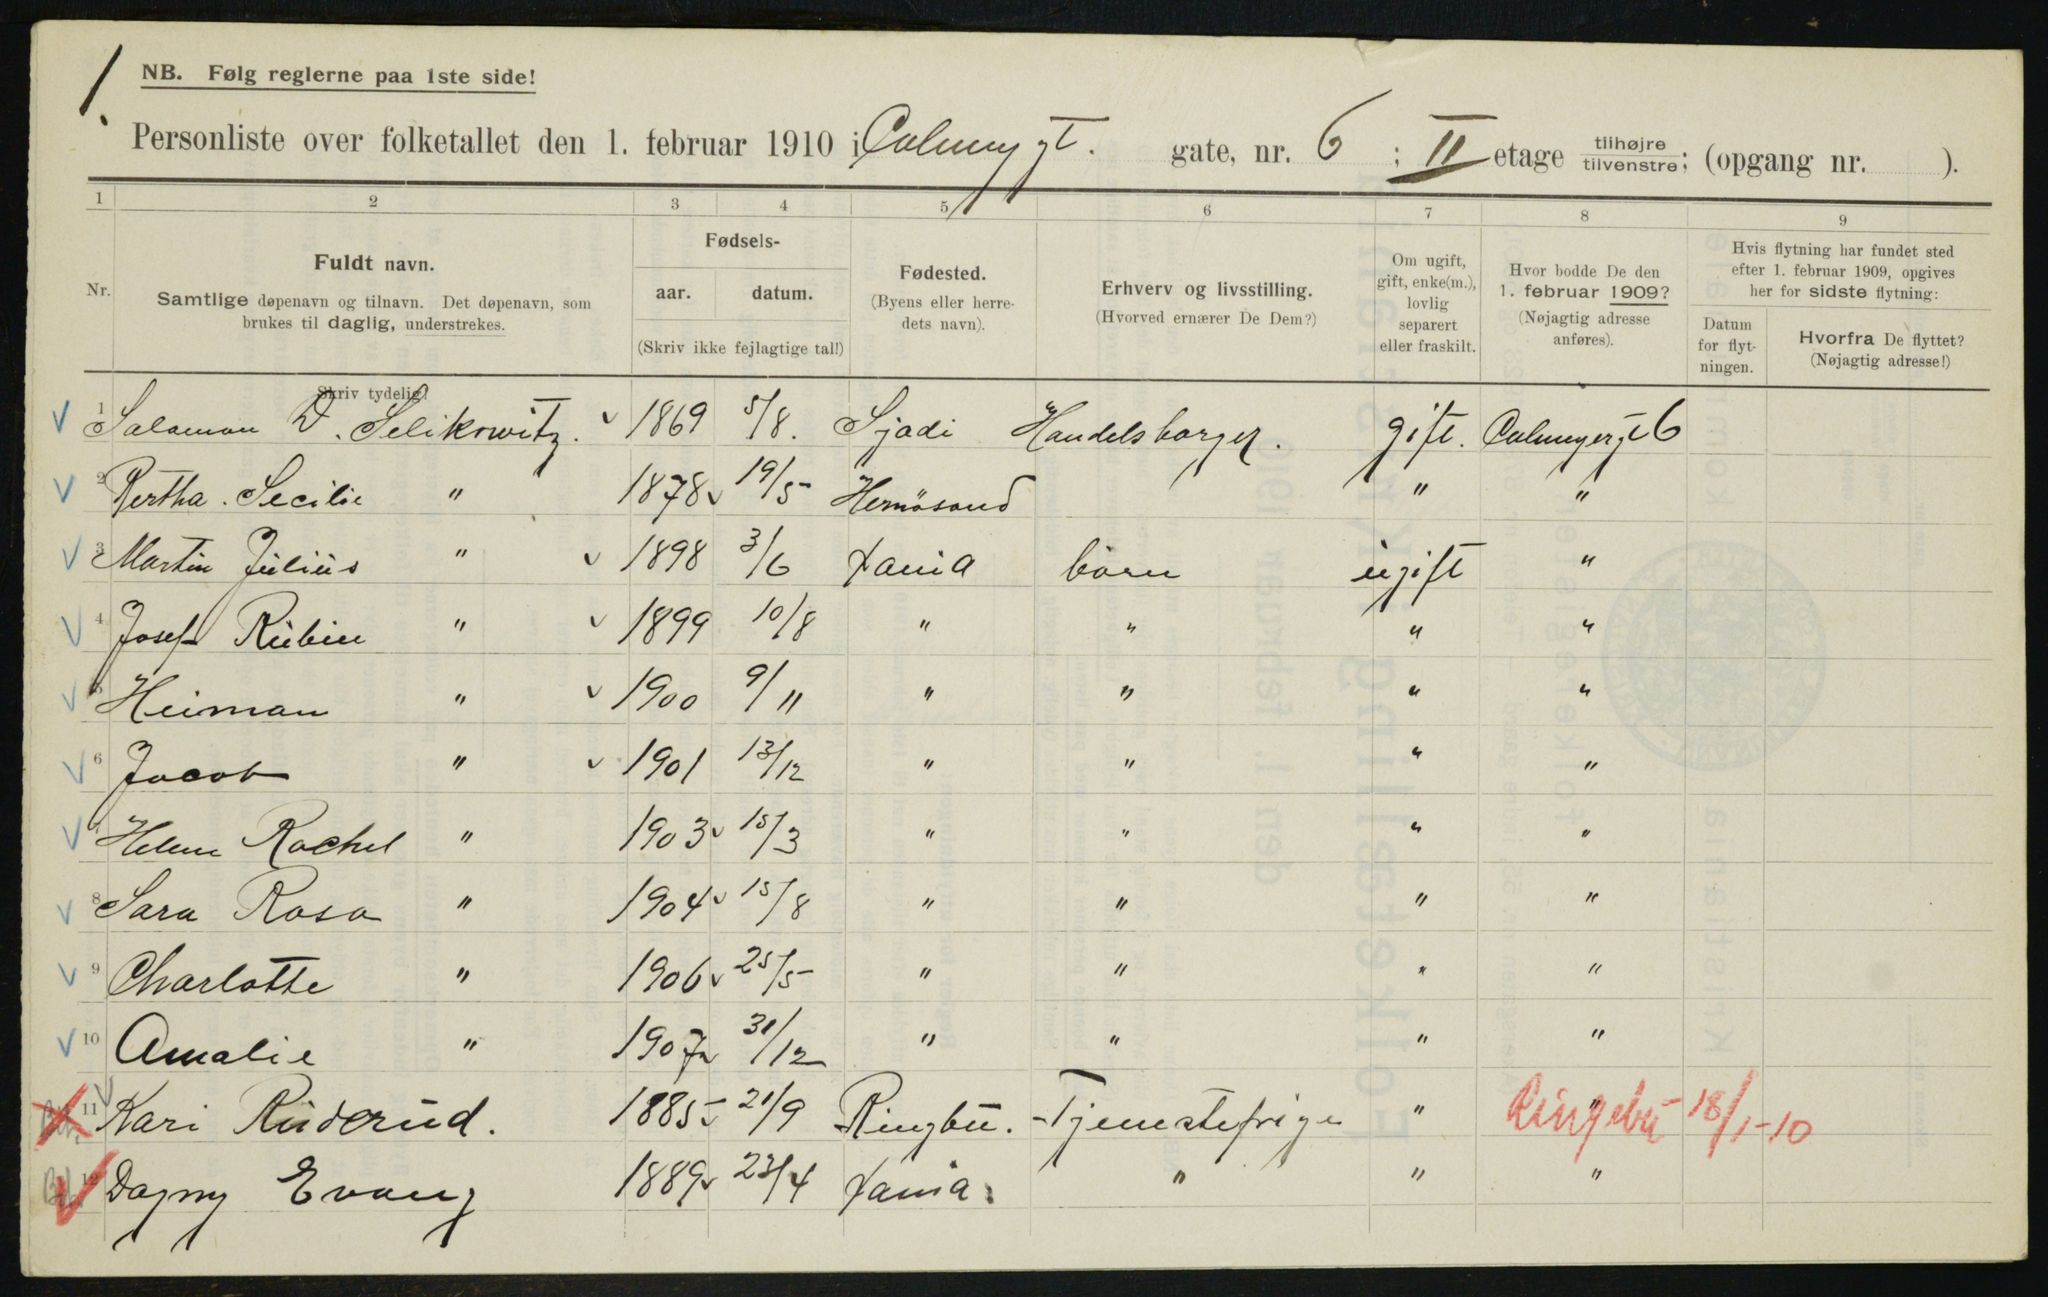 1.
NB. Følg reglerne paa 1ste side!
Personliste over folketallet den 1. februar 1910 i Calmeygt. gate, nr. 6 ; II etage tilhøjre/tilvenstre; (opgang nr. ).
1 2 3 4 5 6 7 8 9
Nr.
Fuldt navn.
Samtlige døpenavn og tilnavn. Det døpenavn, som
brukes til daglig, understrekes.
Skriv tydelig!
Fødsels-
aar. datum.
(Skriv ikke fejlagtige tal!)
Fødested.
(Byens eller herre-
dets navn).
Erhverv og livsstilling.
(Hvorved ernærer De Dem?)
Om ugift,
gift, enke(m.),
lovlig
separert
eller fraskilt.
Hvor bodde De den
1. februar 1909?
(Nøjagtig adresse
anføres).
Hvis flytning har fundet sted
efter 1. februar 1909, opgives
her for sidste flytning:
Datum
for flyt-
ningen.
Hvorfra De flyttet?
(Nøjagtig adresse!)
1 Salamon D. Selikowitz. 1869 5/8. Sjadi Handelsborger. gift. Calmeyergt 6
2 Bertha. Secilie " 1878 19/5 Hernösand " "
3 Martin Julius " 1898 3/6 Xania børn ugift "
4 Josef Rubin " 1899 10/8 " " " "
5 Heiman " 1900 9/11 " " " "
6 Jacob " 1901 13/12 " " " "
7 Helene Rachel " 1903 15/3 " " " "
8 Sara Rosa " 1904 15/8 " " " "
9 Charlotte " 1906 25/5 " " " "
10 Amalie " 1907 31/12 " " " "
11 Kari Ruderud. 1885 21/9 Ringbu. Tjenestefrige " " Ringebu 18/1-10
12 Dagny Evang 1889 23/4 Xania. " " "